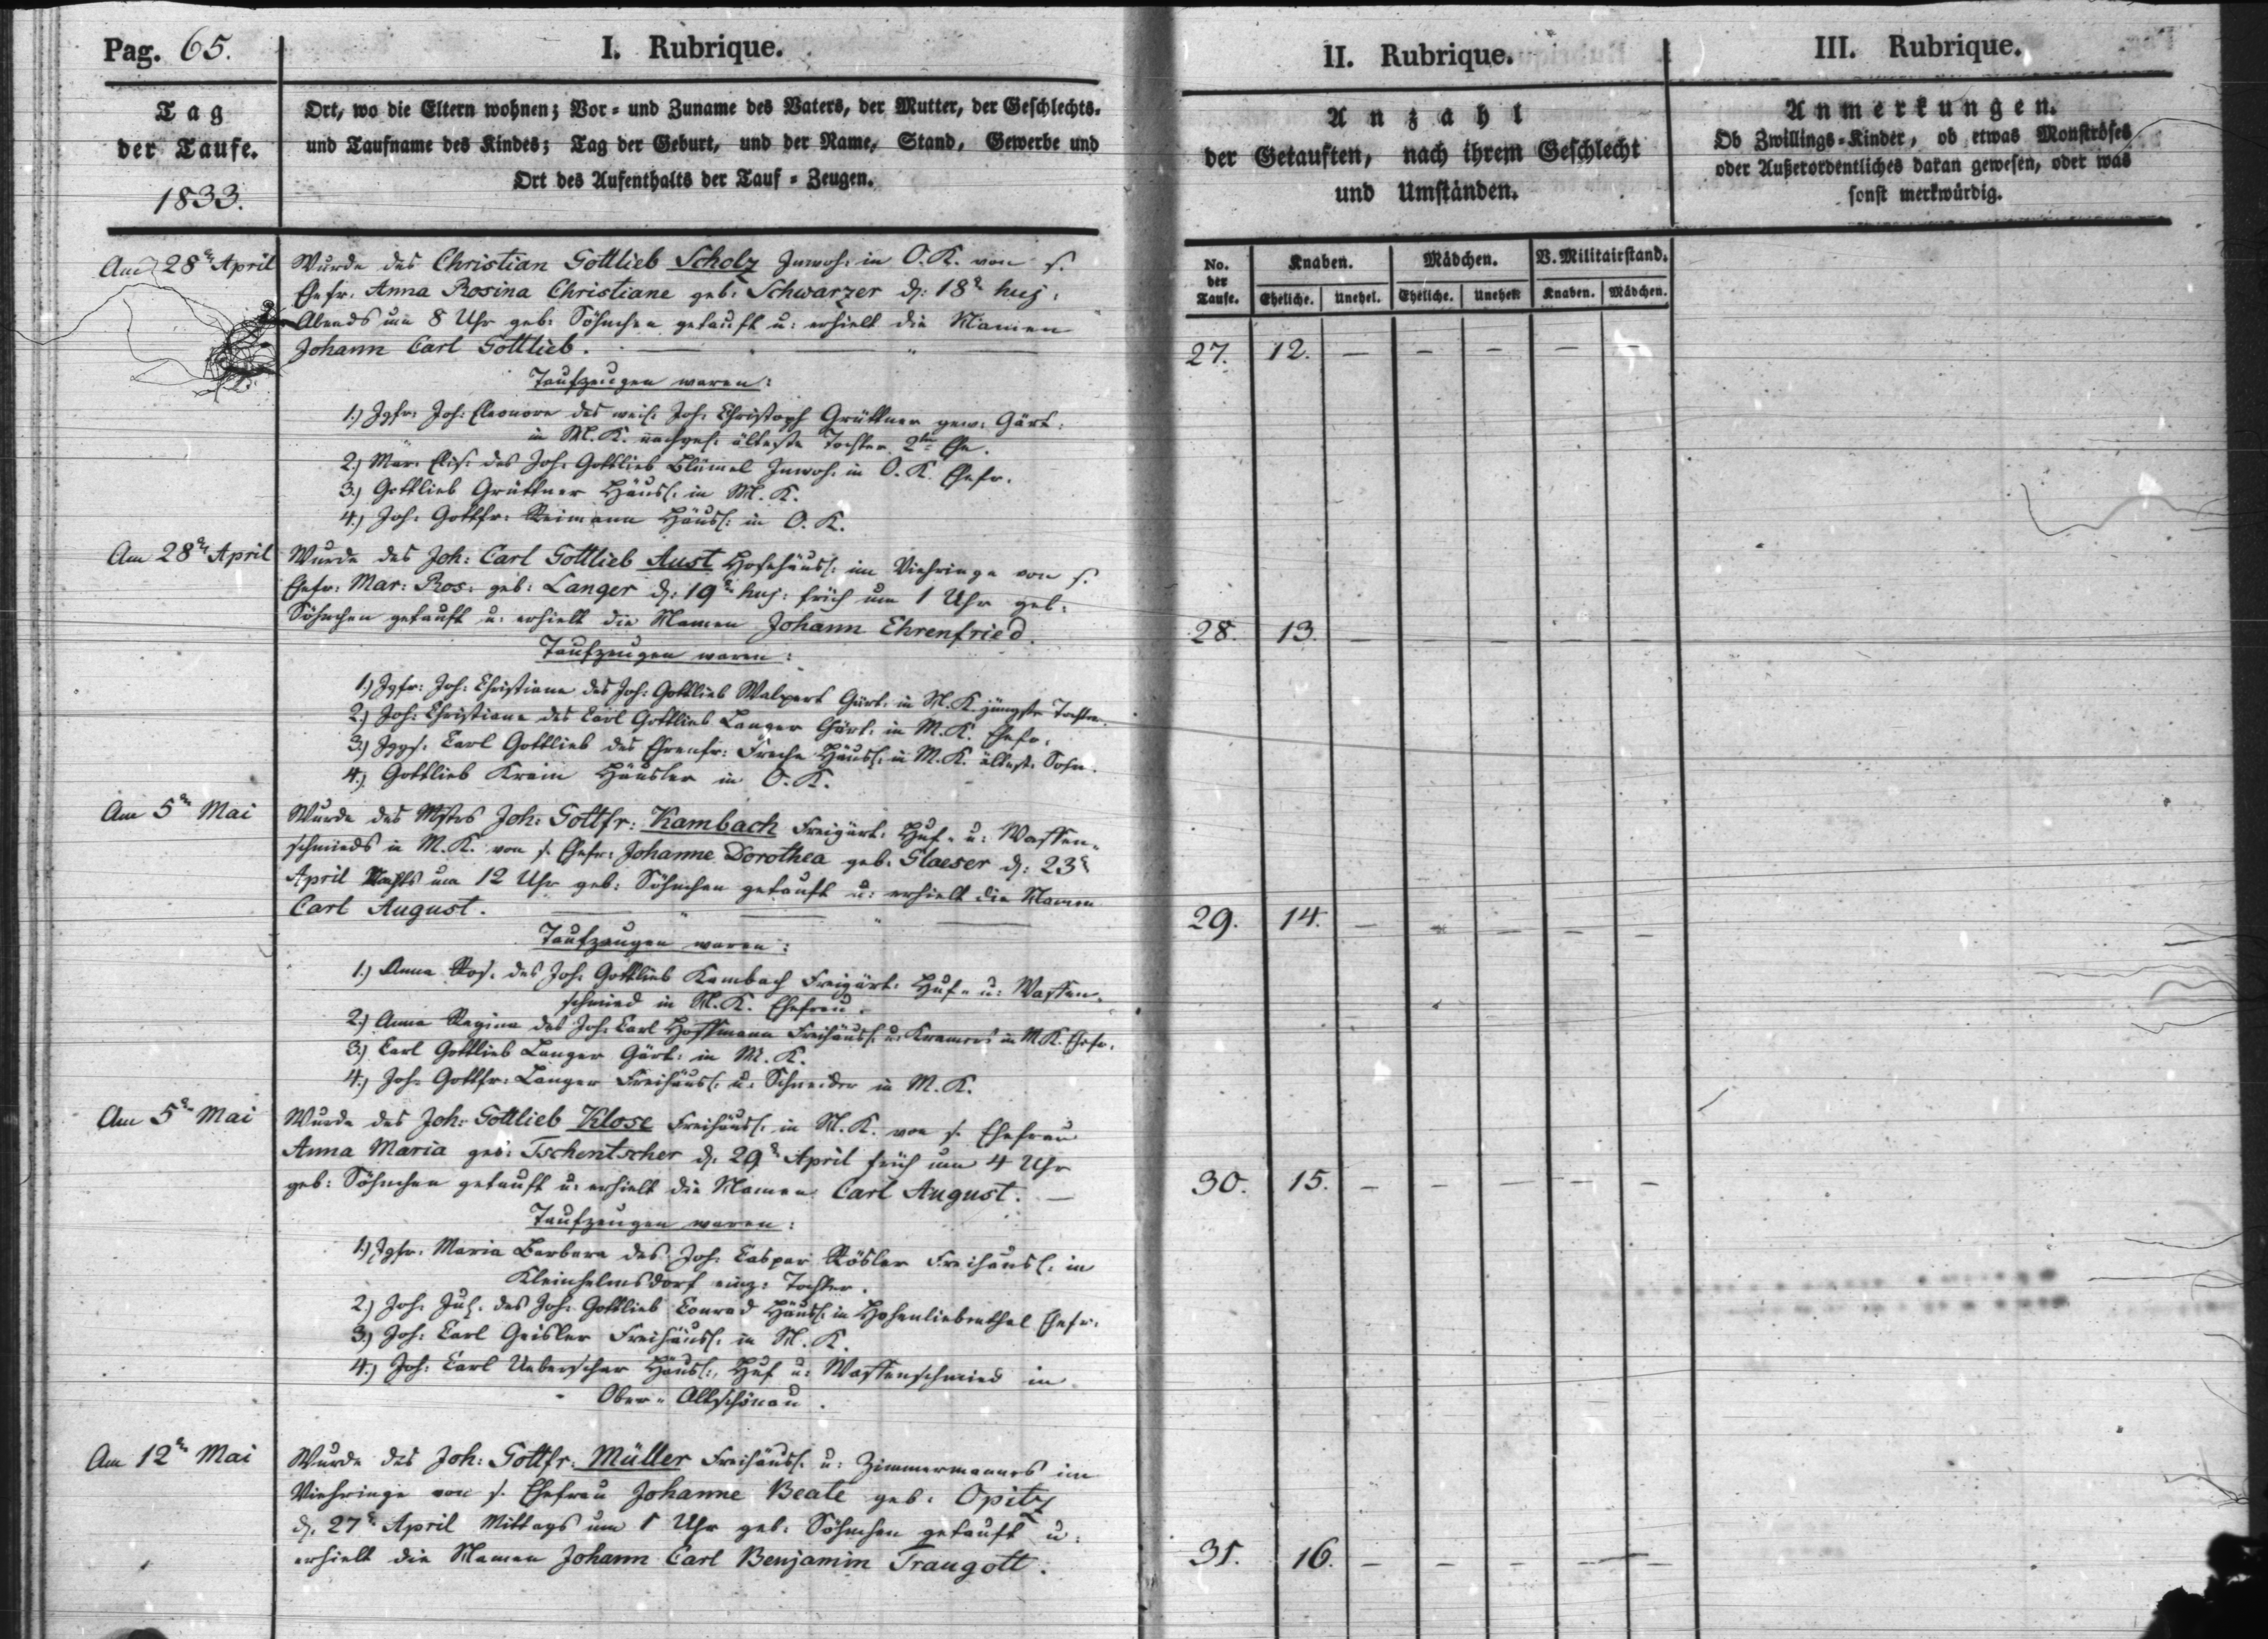 Pag. 65.
I. Rubrique.
Tag
der Taufe.
1833.
Ort, wo die Eltern wohnen; Vor- und Zuname des Vaters, der Mutter, der Geschlechts-
und Taufname des Kindes; Tag der Geburt, und der Name, Stand, Gewerbe und
Ort des Aufenthalts der Tauf-Zeugen.
Am 28n April
Wurde des Christian Gottlieb Scholz Inwoh: in O.K. von s.
Ehefr. Anna Rosina Christiane geb: Schwarzer d: 18n huj:
Abends um 8 Uhr geb: Söhnchen getauft u: erhielt die Namen
Johann Carl Gottlieb.
Taufzeugen waren:
1.) Jgfr: Joh: Eleonore des weil: Joh: Christoph Grüttner gew: Gärt:
in M.K. nachgel: älteste Tochter 2ter Ehe.
2.) Mar: Elis: des Joh: Gottlieb Blümel Inwoh: in O.K. Ehefr.
3.) Gottlieb Grüttner Häusl: in M.K.
4.) Joh: Gottfr: Reimann Häusl: in O.K.
Am 28n April
Wurde des Joh: Carl Gottlieb Aust Hofehäusl: im Viehringe von s.
Ehefr: Mar: Ros: geb: Langer d: 19n huj: früh um 1 Uhr geb:
Söhnchen getauft u: erhielt die Namen Johann Ehrenfried.
Taufzeugen waren:
1.) Jgfr: Joh: Christiane des Joh: Gottlieb Walpert Gärt: in M.K. jüngste Tochter.
2.) Joh: Christiane des Carl Gottlieb Langer Gärt: in M.K. Ehefr.
3.) Jggs: Carl Gottlieb des Ehrenfr: Freche Häusl: in M.K. ältest: Sohn.
4.) Gottlieb Krain Häusler in O.K.
Am 5n Mai
Wurde des Mstrs Joh: Gottfr: Kambach Freigärt: Huf- u: Waffen-
schmieds in M.K. von s. Ehefr: Johanne Dorothea geb: Glaeser d: 23n
April Nachts um 12 Uhr geb: Söhnchen getauft u: erhielt die Namen
Carl August.
Taufzeugen waren:
1.) Anna Ros: des Joh: Gottlieb Kambach Freigärt: Huf- u: Waffen-
schmied in M.K. Ehefrau.
2.) Anna Regina des Joh: Carl Hoffmann Freihäusl: u: Kramers in M.K. Ehefr.
3.) Carl Gottlieb Langer Gärt: in M.K.
4.) Joh: Gottfr: Langer Freihäusl: u: Schneider in M.K.
Am 5n Mai
Wurde des Joh: Gottlieb Klose Freihäusl: in M.K. von s. Ehefrau
Anna Maria geb: Tschentscher d: 29n April früh um 4 Uhr
geb: Söhnchen getauft u: erhielt die Namen Carl August. —
Taufzeugen waren:
1.) Jgfr: Maria Barbara des Joh: Caspar Rösler Freihäusl: in
Kleinhelmsdorf einz: Tochter.
2.) Joh: Jul: des Joh: Gottlieb Conrad Häusl: in Hohenliebenthal Ehefr.
3.) Joh: Carl Geisler Freihäusl: in M.K.
4.) Joh: Carl Ueberschar Häusl:, Huf u: Waffenschmied in
Ober-Altschönau.
Am 12n Mai
Wurde des Joh: Gottfr: Müller Freihäusl: u: Zimmermannes im
Viehringe von s. Ehefrau Johanne Beate geb: Opitz
d: 27n April Mittags um 1 Uhr geb: Söhnchen getauft u:
erhielt die Namen Johann Carl Benjamin Traugott.
II. Rubrique.
Anzahl
der Getauften, nach ihrem Geschlecht
und Umständen.
No. der Taufe. Knaben. Mädchen. V. Militairstand.
Eheliche. Unehel. Eheliche. Unehel. Knaben. Mädchen.
27. 12. — — — — —
28. 13. — — — — —
29. 14. — — — — —
30. 15. — — — — —
31. 16. — — — — —
III. Rubrique.
Anmerkungen.
Ob Zwillings-Kinder, ob etwas Monströses
oder Außerordentliches daran gewesen, oder was
sonst merkwürdig.